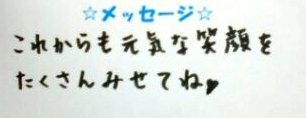 ☆メッセージ☆
これからも元気な笑顔を
たくさんみせてね♥